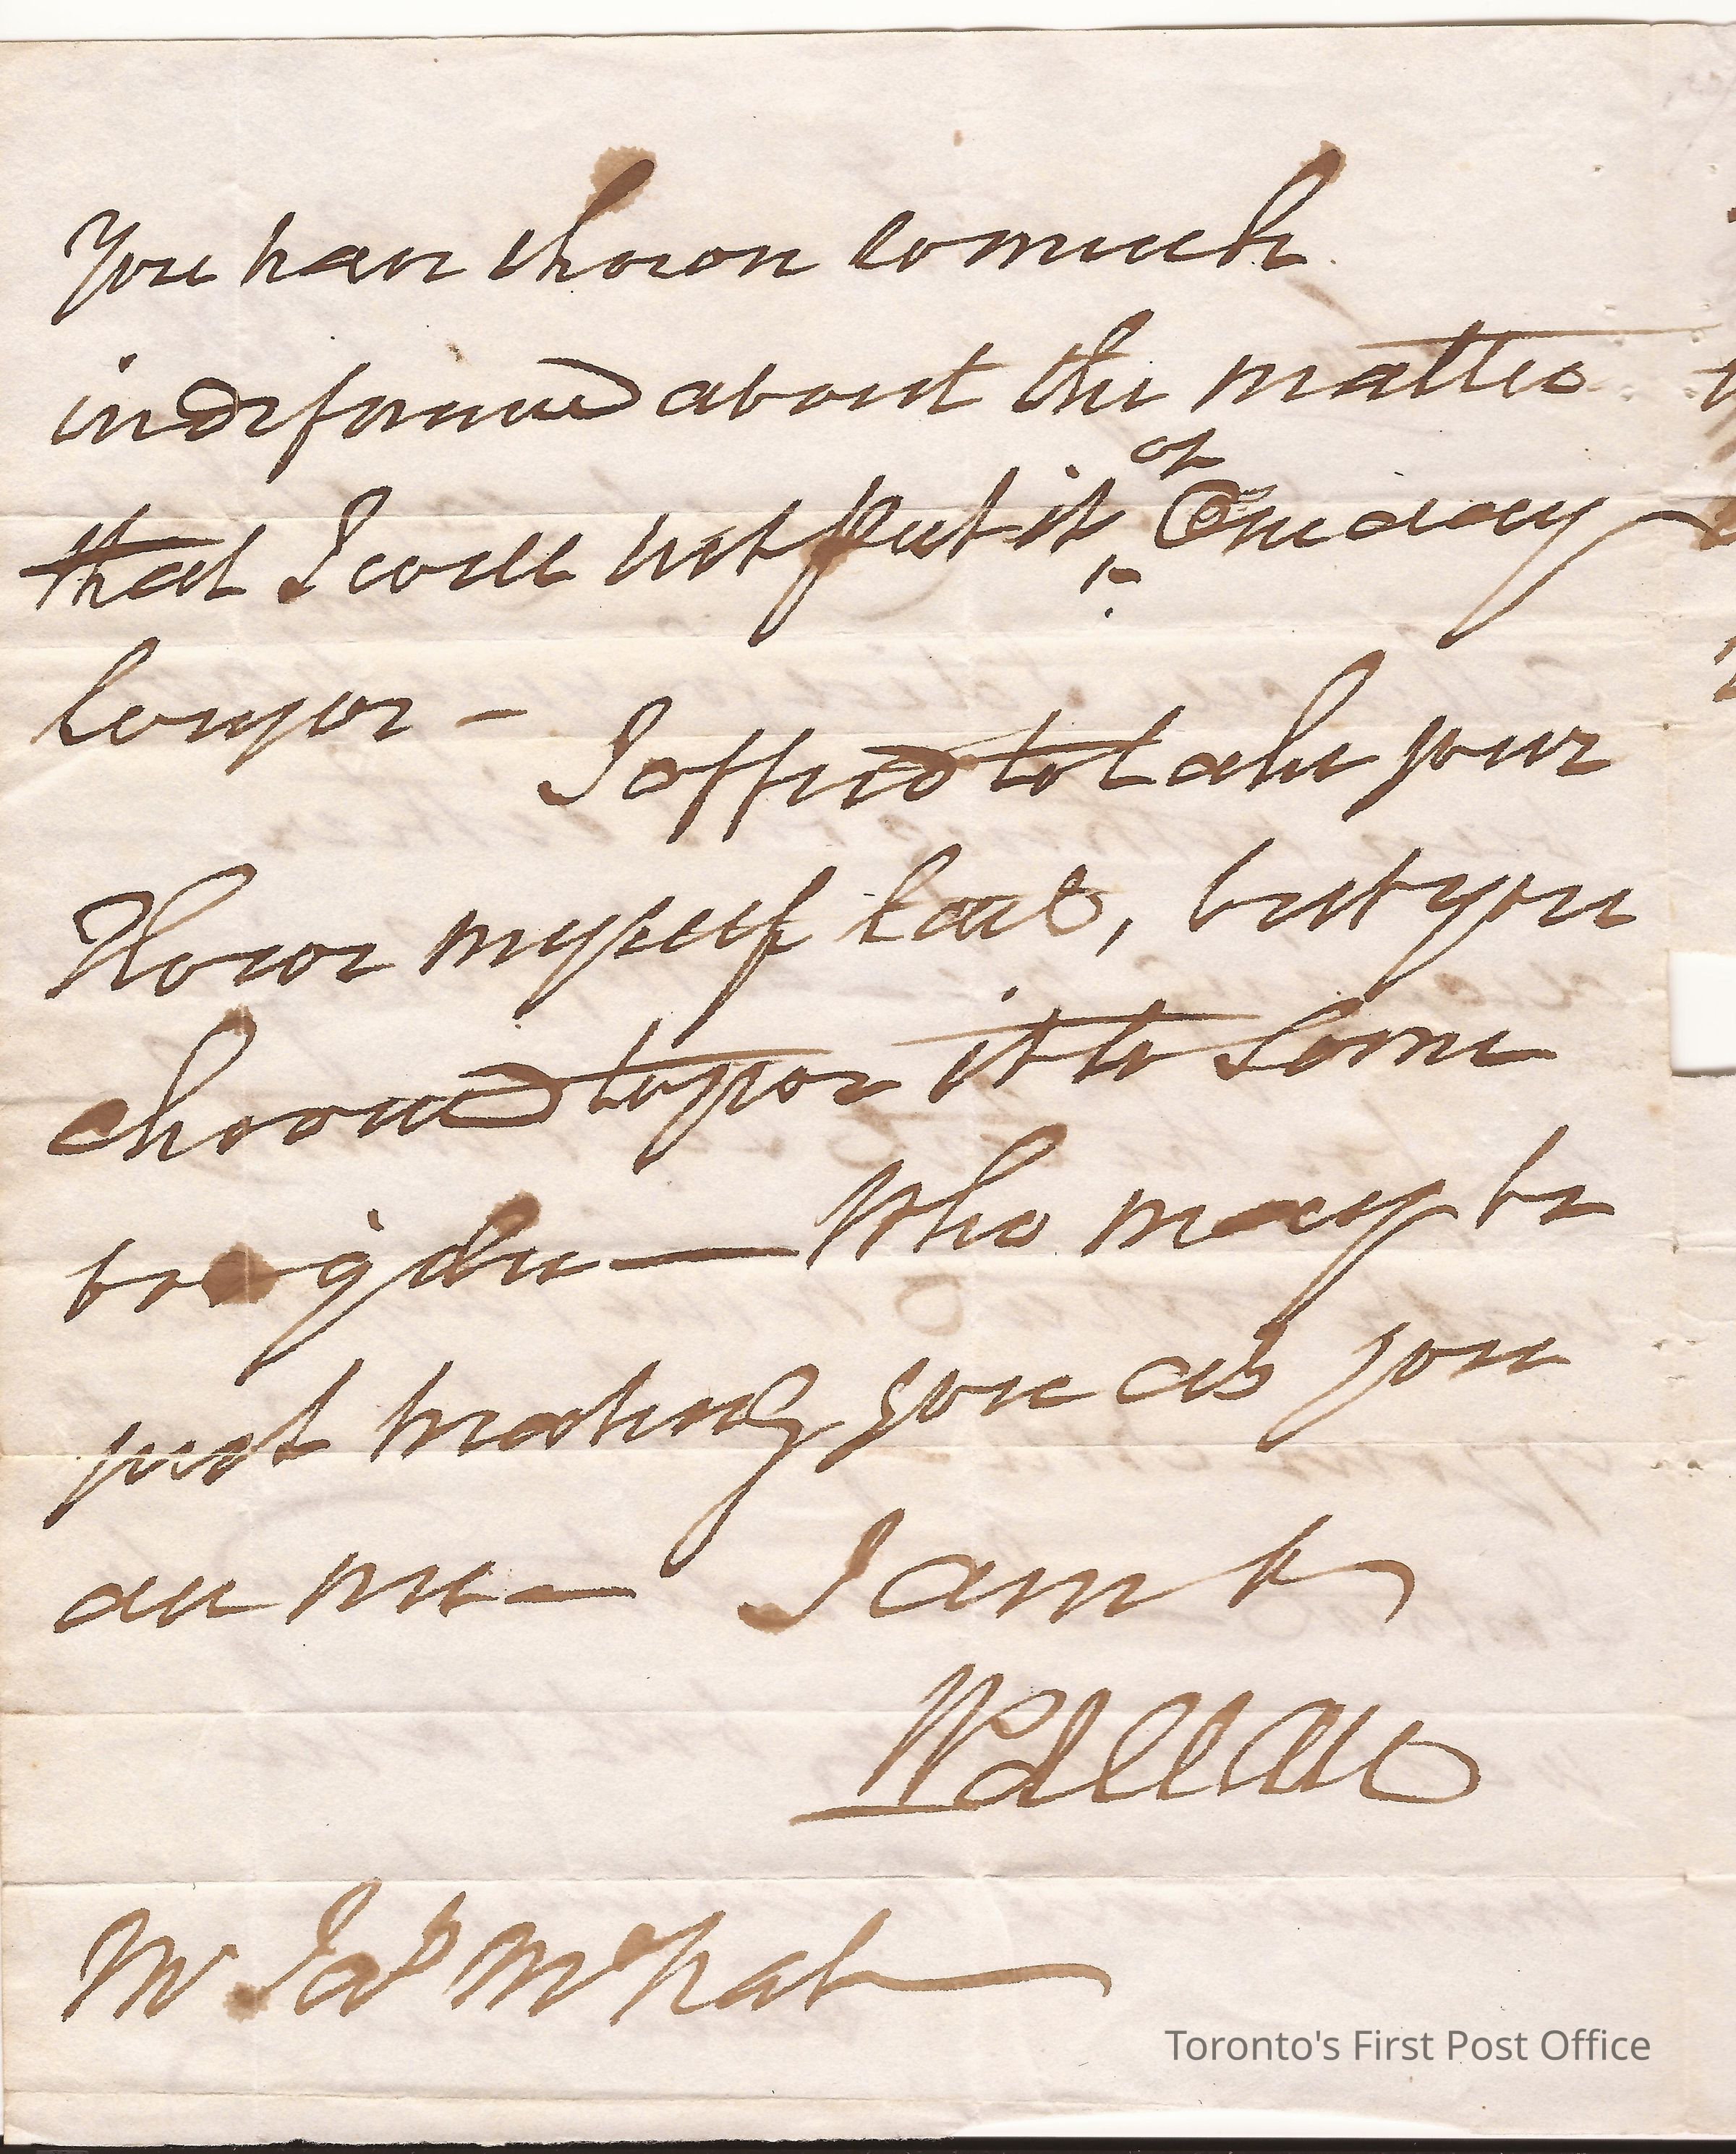 You have shown so much
indifference about the matter
that I will not put it off One day
longer — I offered to take your
Flour myself last, but you
choosed to give it to some
body else — Who may be
just treating you as you
are me — I am &c
W Allan
Mr Jas McNab
Toronto's First Post Office